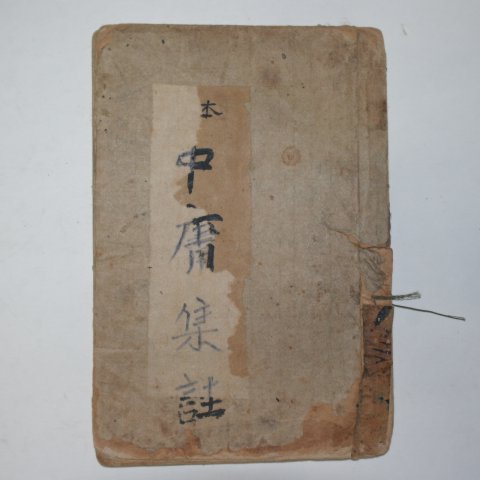 本
中庸集註